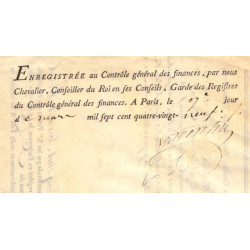 ENREGISTRÉE au Contrôle général des finances, par nous
Chevalier, Conseiller du Roi en ses Conseils, Garde des Registres
du Contrôle général des finances. A Paris, le jour
de mars mil sept cent quatre-vingt neuf.